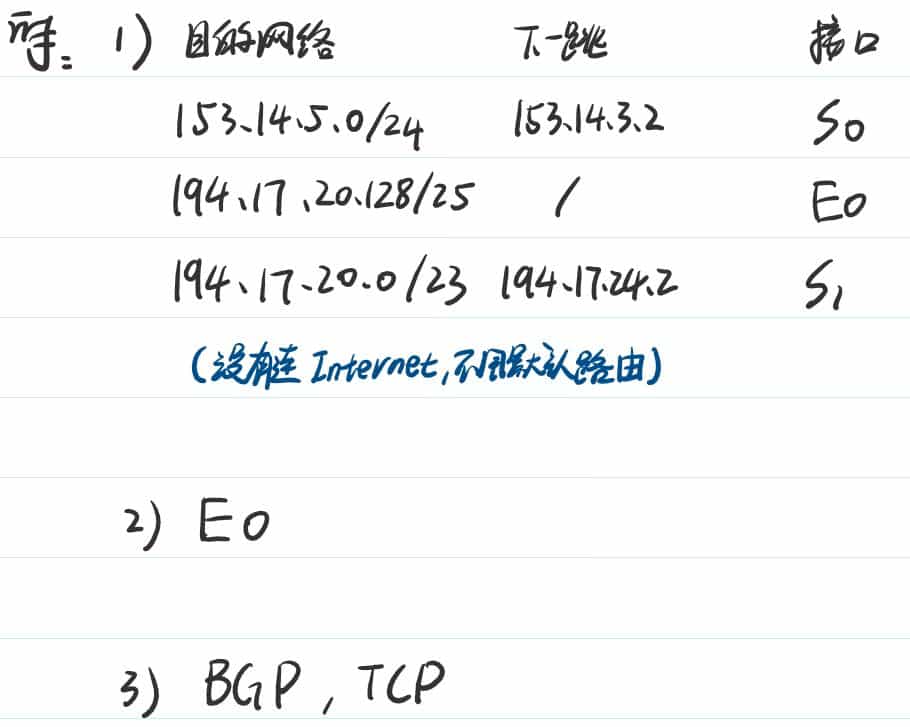 解: 1) 目的网络 下一跳 接口
153.14.5.0/24 153.14.3.2 S0
194.17.20.128/25 / E0
194.17.20.0/23 194.17.24.2 S1
(没有连 Internet,不用默认路由)
2) E0
3) BGP, TCP